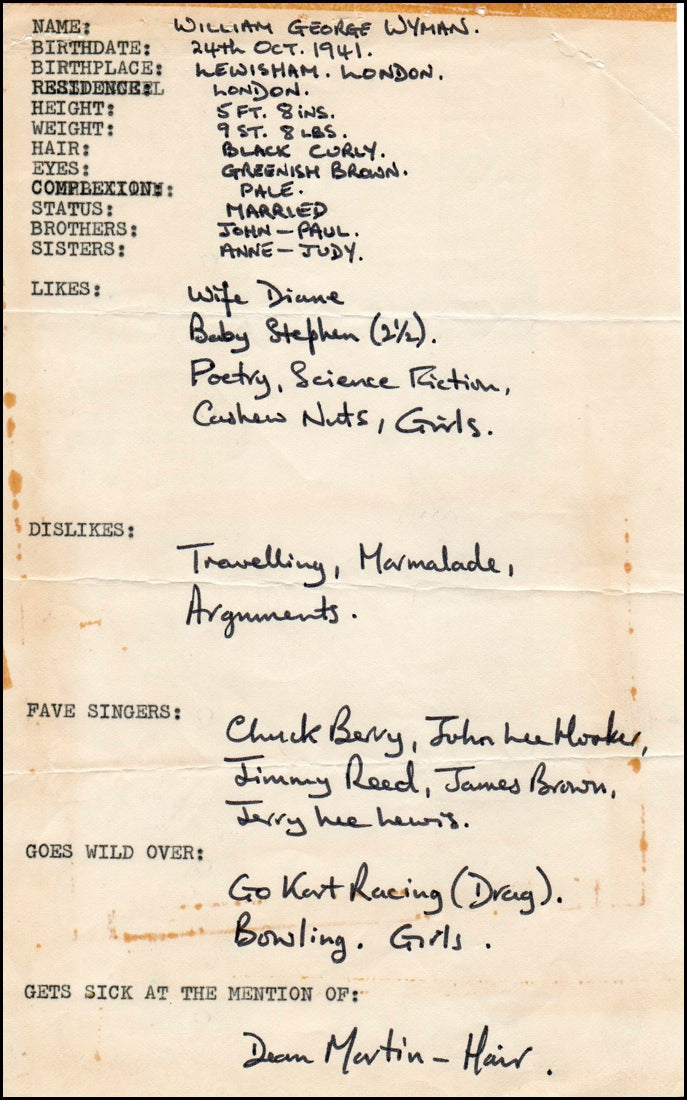 NAME: WILLIAM GEORGE WYMAN.
BIRTHDATE: 24th OCT. 1941.
BIRTHPLACE: LEWISHAM. LONDON.
RESIDENCE: LONDON.
HEIGHT: 5 FT. 8 INS.
WEIGHT: 9 ST. 8 LBS.
HAIR: BLACK CURLY.
EYES: GREENISH BROWN.
COMPLEXION: PALE.
STATUS: MARRIED
BROTHERS: JOHN – PAUL.
SISTERS: ANNE – JUDY.
LIKES: Wife Diane
Baby Stephen (2½).
Poetry, Science Fiction,
Cashew Nuts, Girls.
DISLIKES:
Travelling, Marmalade,
Arguments.
FAVE SINGERS:
Chuck Berry, John Lee Hooker,
Jimmy Reed, James Brown,
Jerry Lee Lewis.
GOES WILD OVER:
Go Kart Racing (Drag).
Bowling. Girls.
GETS SICK AT THE MENTION OF:
Dean Martin – Hair.